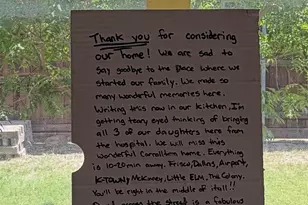 Thank you for considering
our home! We are sad to
say goodbye to the place where we
started our family. We made so
many wonderful memories here.
Writing this now in our kitchen, I'm
getting teary eyed thinking of bringing
all 3 of our daughters here from
the hospital. We will miss this
wonderful Carrollton home. Everything
is 10-20min away. Frisco, Dallas, Airport,
K-Town, McKinney, Little Elm, The Colony.
You'll be right in the middle of it all!!
across the street is a fabulous